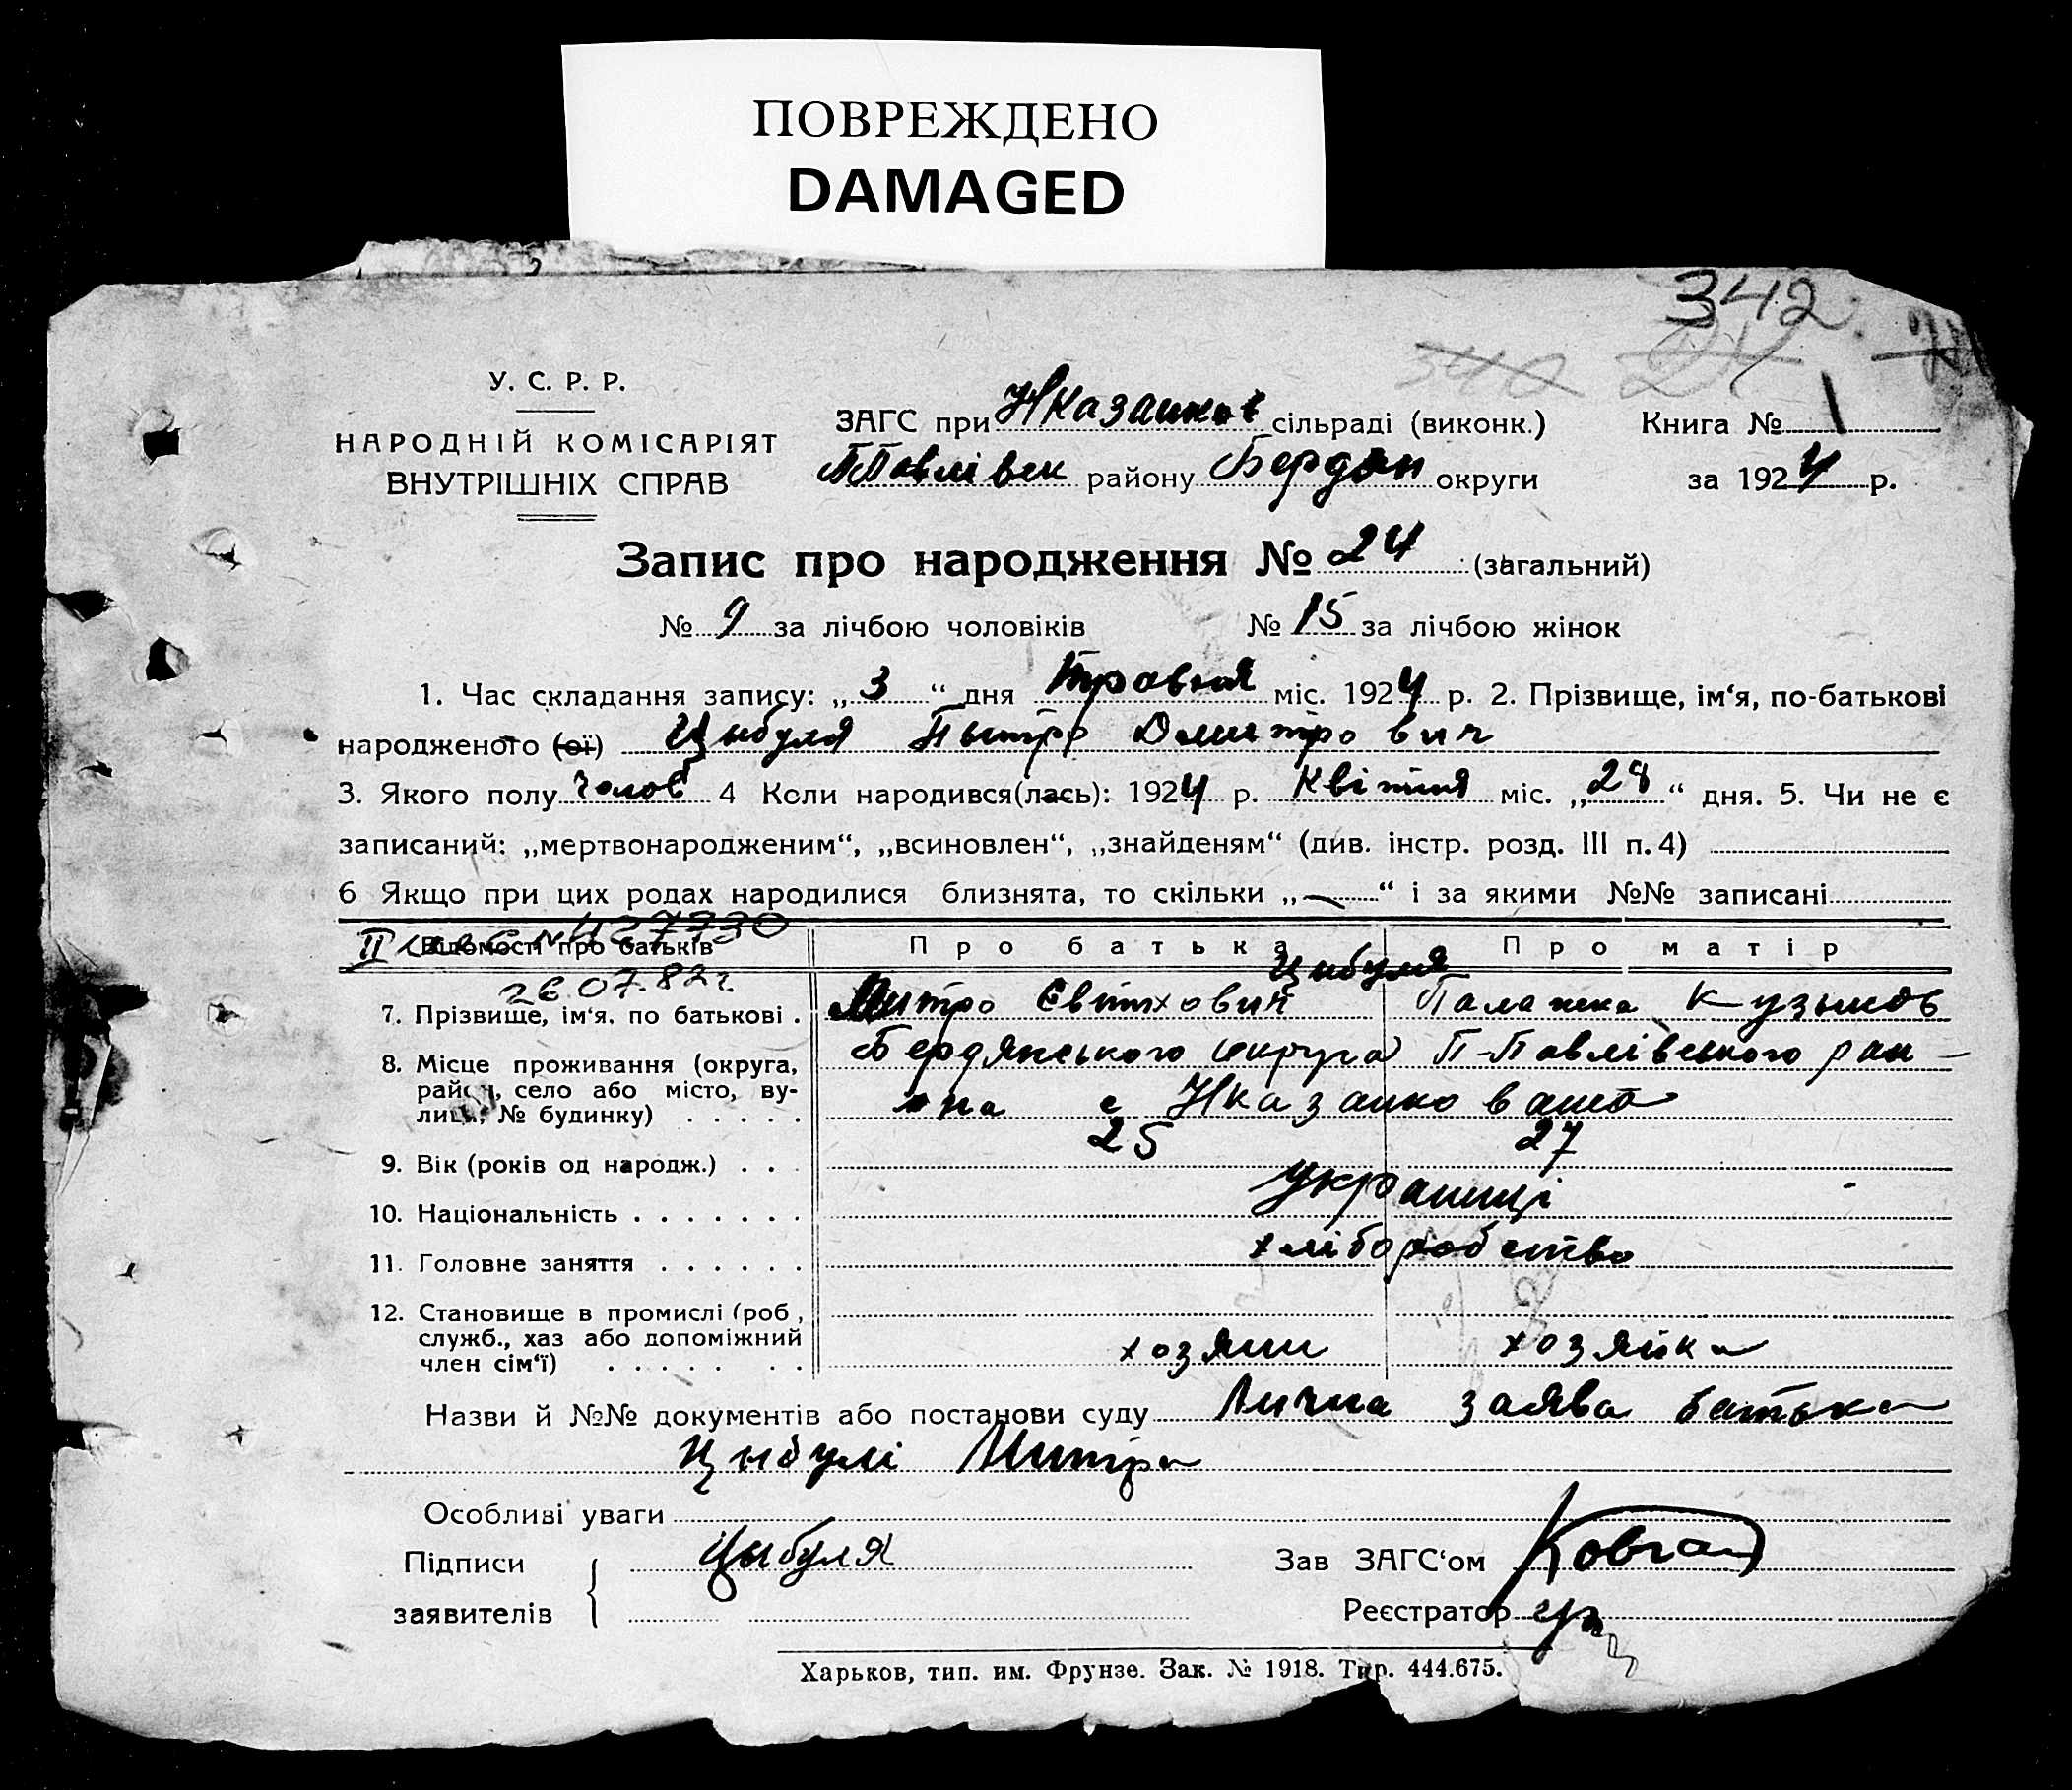 ПОВРЕЖДЕНО
DAMAGED
342
340 24
У. С. Р. Р.
НАРОДНІЙ КОМІСАРІЯТ
ВНУТРІШНІХ СПРАВ
ЗАГС при Нказанков сільраді (виконк.) Книга № 1
ППавлівск району Бердян округи за 1924 р.
Запис про народження № 24 (загальний)
№ 9 за лічбою чоловіків № 15 за лічбою жінок
1. Час складання запису: „ 3 “ дня травня міс. 1924 р. 2. Прізвище, ім‘я, по-батькові
народженого (ої) Цыбуля Пытро Дмитрович
3. Якого полу чолов 4 Коли народився(лась): 1924 р. Квітня міс. „ 28 “ дня. 5. Чи не є
записаний: „мертвонародженим“, „всиновлен“, „знайденям“ (див. інстр. розд. III п. 4)
6 Якщо при цих родах народилися близнята, то скільки „ — “ і за якими №№ записані
II
Відомості про батьків Про батька Про матір
26.07.82г. Цыбуля
7. Прізвище, ім‘я, по батькові . Митро Євтихович Палажка Кузьмов
8. Місце проживання (округа, Бердянського округа П-Павлівського рай-
район, село або місто, ву- она с Нказанковатэ
лиця, № будинку) . . . . .
9. Вік (років од народж.) . . . 25 27
10. Національність . . . . . . . Українці
11. Головне заняття . . . . . . хліборобство
12. Становище в промислі (роб,
служб., хаз або допоміжний хозяин хозяйка
член сім‘ї) . . . . . . .
Назви й №№ документів або постанови суду Лична заява батька
Цыбулі Митра
Особливі уваги
Підписи Цыбуля Зав ЗАГС‘ом
заявителів Реєстратор
Харьков, тип. им. Фрунзе. Зак. № 1918. Тир. 444.675.